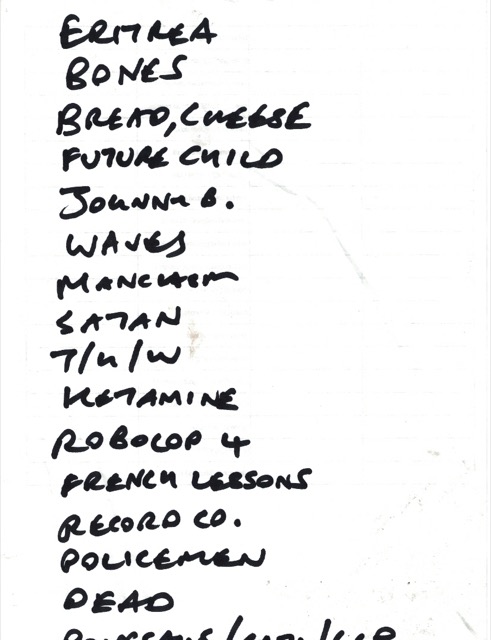 ERITREA
BONES
BREAD, CHEESE
FUTURE CHILD
JOHNNY B.
WAVES
SATAN
T/H/W
KETAMINE
ROBOCOP 4
FRENCH LESSONS
RECORD CO.
POLICEMEN
DEAD